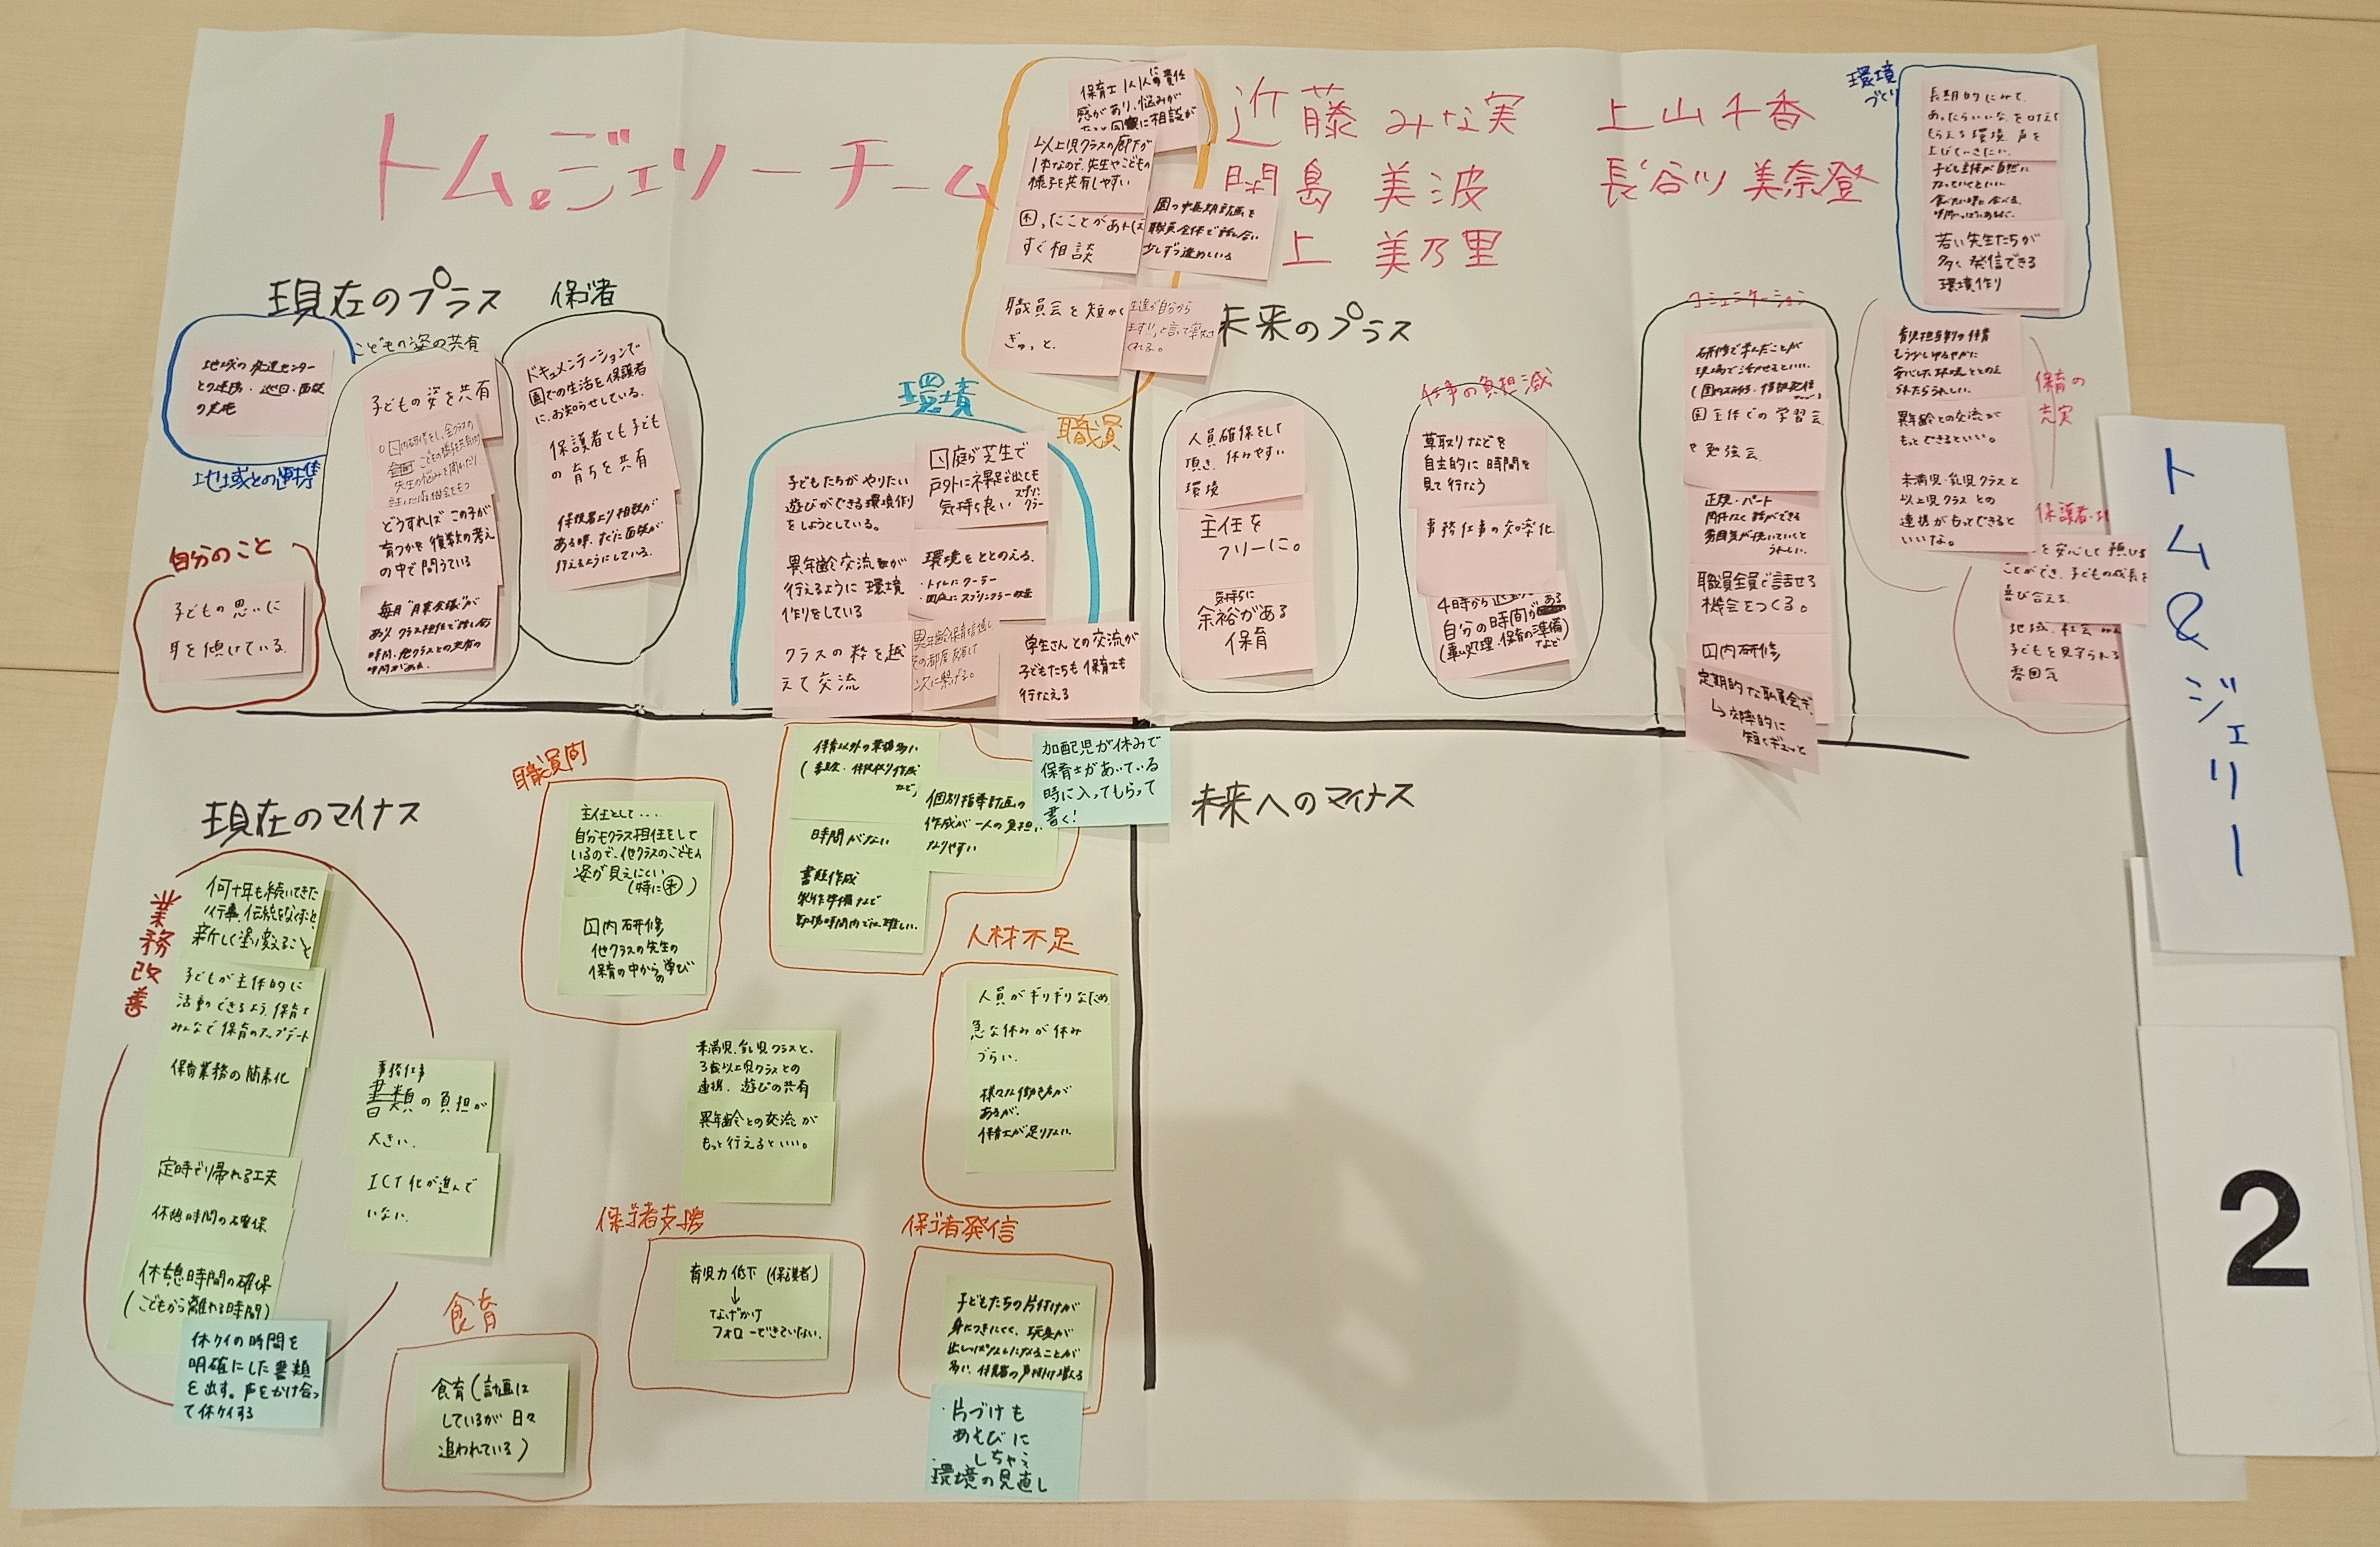 トム&ジェリーチーム
近藤 みな実
上山千香
間島 美波
長谷川 美奈登
上 美乃里
現在のプラス
地域との連携
地域の発達センター
との連携・巡回・面談
の実施
自分のこと
子どもの思いに
耳を傾けている
こどもの姿の共有
子どもの姿を共有
どうすればこの子が
育つかを複数の考え
の中で問うている
保ゴ者
ドキュメンテーションで
園での生活を保護者
に、お知らせしている。
保護者とも子ども
の育ちを共有
保護者より相談が
ある時、すぐに面談が
行えるようにしている。
環境
子どもたちがやりたい
遊びができる環境作り
をしようとしている。
異年齢交流が
行えるように環境
作りをしている
クラスの粋を越
えて交流
園庭が芝生で
戸外に裸足で出ても
気持ち良い
環境をととのえる。
・トイレにクーラー
学生さんとの交流が
子どもたちも保育士も
行なえる
職員
保育士1人1人に責任
感があり、悩みが
以上児クラスの廊下が
1本なので、先生やこどもの
様子を共有しやすい
困ったことがあれば
すぐ相談
園の中長期計画を
職員全体で話し合い
少しずつ進めている
職員会を短かく
ぎゅっと。
未来のプラス
人員確保をして
頂き、休みやすい
環境
主任を
フリーに。
気持ちに
余裕がある
保育
仕事の負担減
草取りなどを
自主的に時間を
見て行なう
事務仕事の効率化
4時から
自分の時間がある
(事ム処理・保育の準備
など)
コミュニケーション
研修で学んだことが
現場で活かせるといい。
園主体での学習会
や勉強会
正規・パート
関係なく話ができる
雰囲気が続いていくと
うれしい。
職員全員で話せる
機会をつくる。
園内研修
定期的な職員会で、
↳効率的に
短くギュッと
環境
づくり
長期的にみて、
若い先生たちが
多く発信できる
環境作り
保育の
充実
育児担当制の保育
もう少しゆるやかに
異年齢との交流が
もっとできるといい。
未満児・乳児クラスと
以上児クラスとの
連携がもっとできると
いいな。
を安心して預ける
ことができ、子どもの成長を
喜び合える。
子どもを見守られる
雰囲気
現在のマイナス
業務改善
何十年も続いてきた
行事、伝統をなくすこと、
新しく塗り変えること
子どもが主体的に
活動できるよう、保育を
みんなで保育のアップデート
保育業務の簡素化
定時で帰れる工夫
休憩時間の確保
休憩時間の確保
(こどもから離れる時間)
休ケイの時間を
明確にした書類
を出す。声をかけ合っ
て休ケイする
事務仕事
書類の負担が
大きい。
ICT化が進んで
いない。
食育
食育(計画は
しているが日々
追われている)
職員間
主任として....
自分もクラス担任をして
いるので、他クラスのこどもの
姿が見えにくい
(特に㊍)
園内研修
他クラスの先生の
保育の中からの学び
保育以外の業務多い
時間がない
書類作成
製作準備など
勤務時間内では難しい。
個別指導計画の
作成が一人の負担に
なりやすい
加配児が休みで
保育士があいている
時に入ってもらって
書く!
未満児、乳児クラスと、
3歳以上児クラスとの
連携、遊びの共有
異年齢との交流が
もっと行えるといい。
人材不足
人員がギリギリなため
急な休みが休み
づらい。
様々な働き方が
あるが、
保育士が足りない
保ゴ者支援
育児力低下(保護者)
↓
なげかけ
フォローできていない。
保ゴ者発信
子どもたちの片付けが
身につきにくく、玩具が
出しっぱなしになることが
多い、保育者の声掛け増える
・片づけも
あそびに
しちゃう
・環境の見直し
未来へのマイナス
トム&ジェリー
2